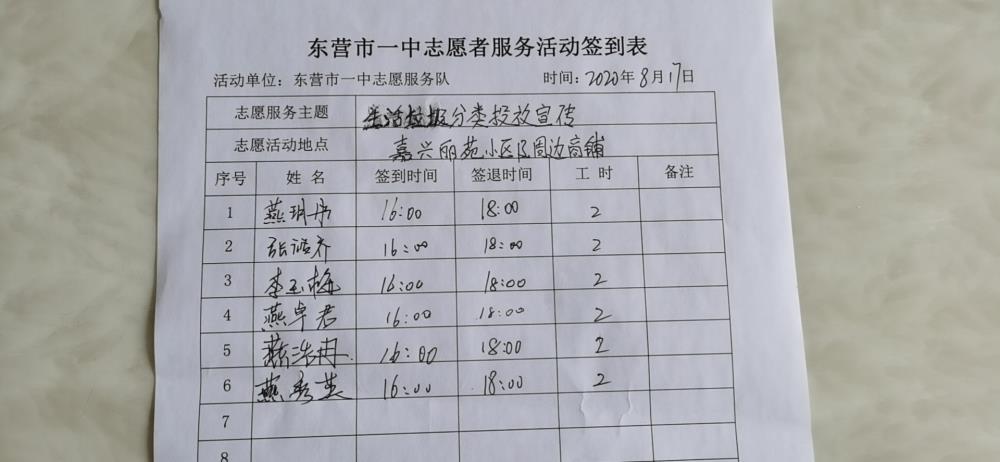 东营市一中志愿者服务活动签到表
活动单位：东营市一中志愿服务队 时间：2020年8月17日
志愿服务主题 生活垃圾分类投放宣传
志愿活动地点 嘉兴丽苑小区及周边商铺
序号 姓名 签到时间 签退时间 工时 备注
1 燕玥彤 16:00 18:00 2
2 张浩齐 16:00 18:00 2
3 李玉梅 16:00 18:00 2
4 燕卓君 16:00 18:00 2
5 燕浩冉 16:00 18:00 2
6 燕秀英 16:00 18:00 2
7
8